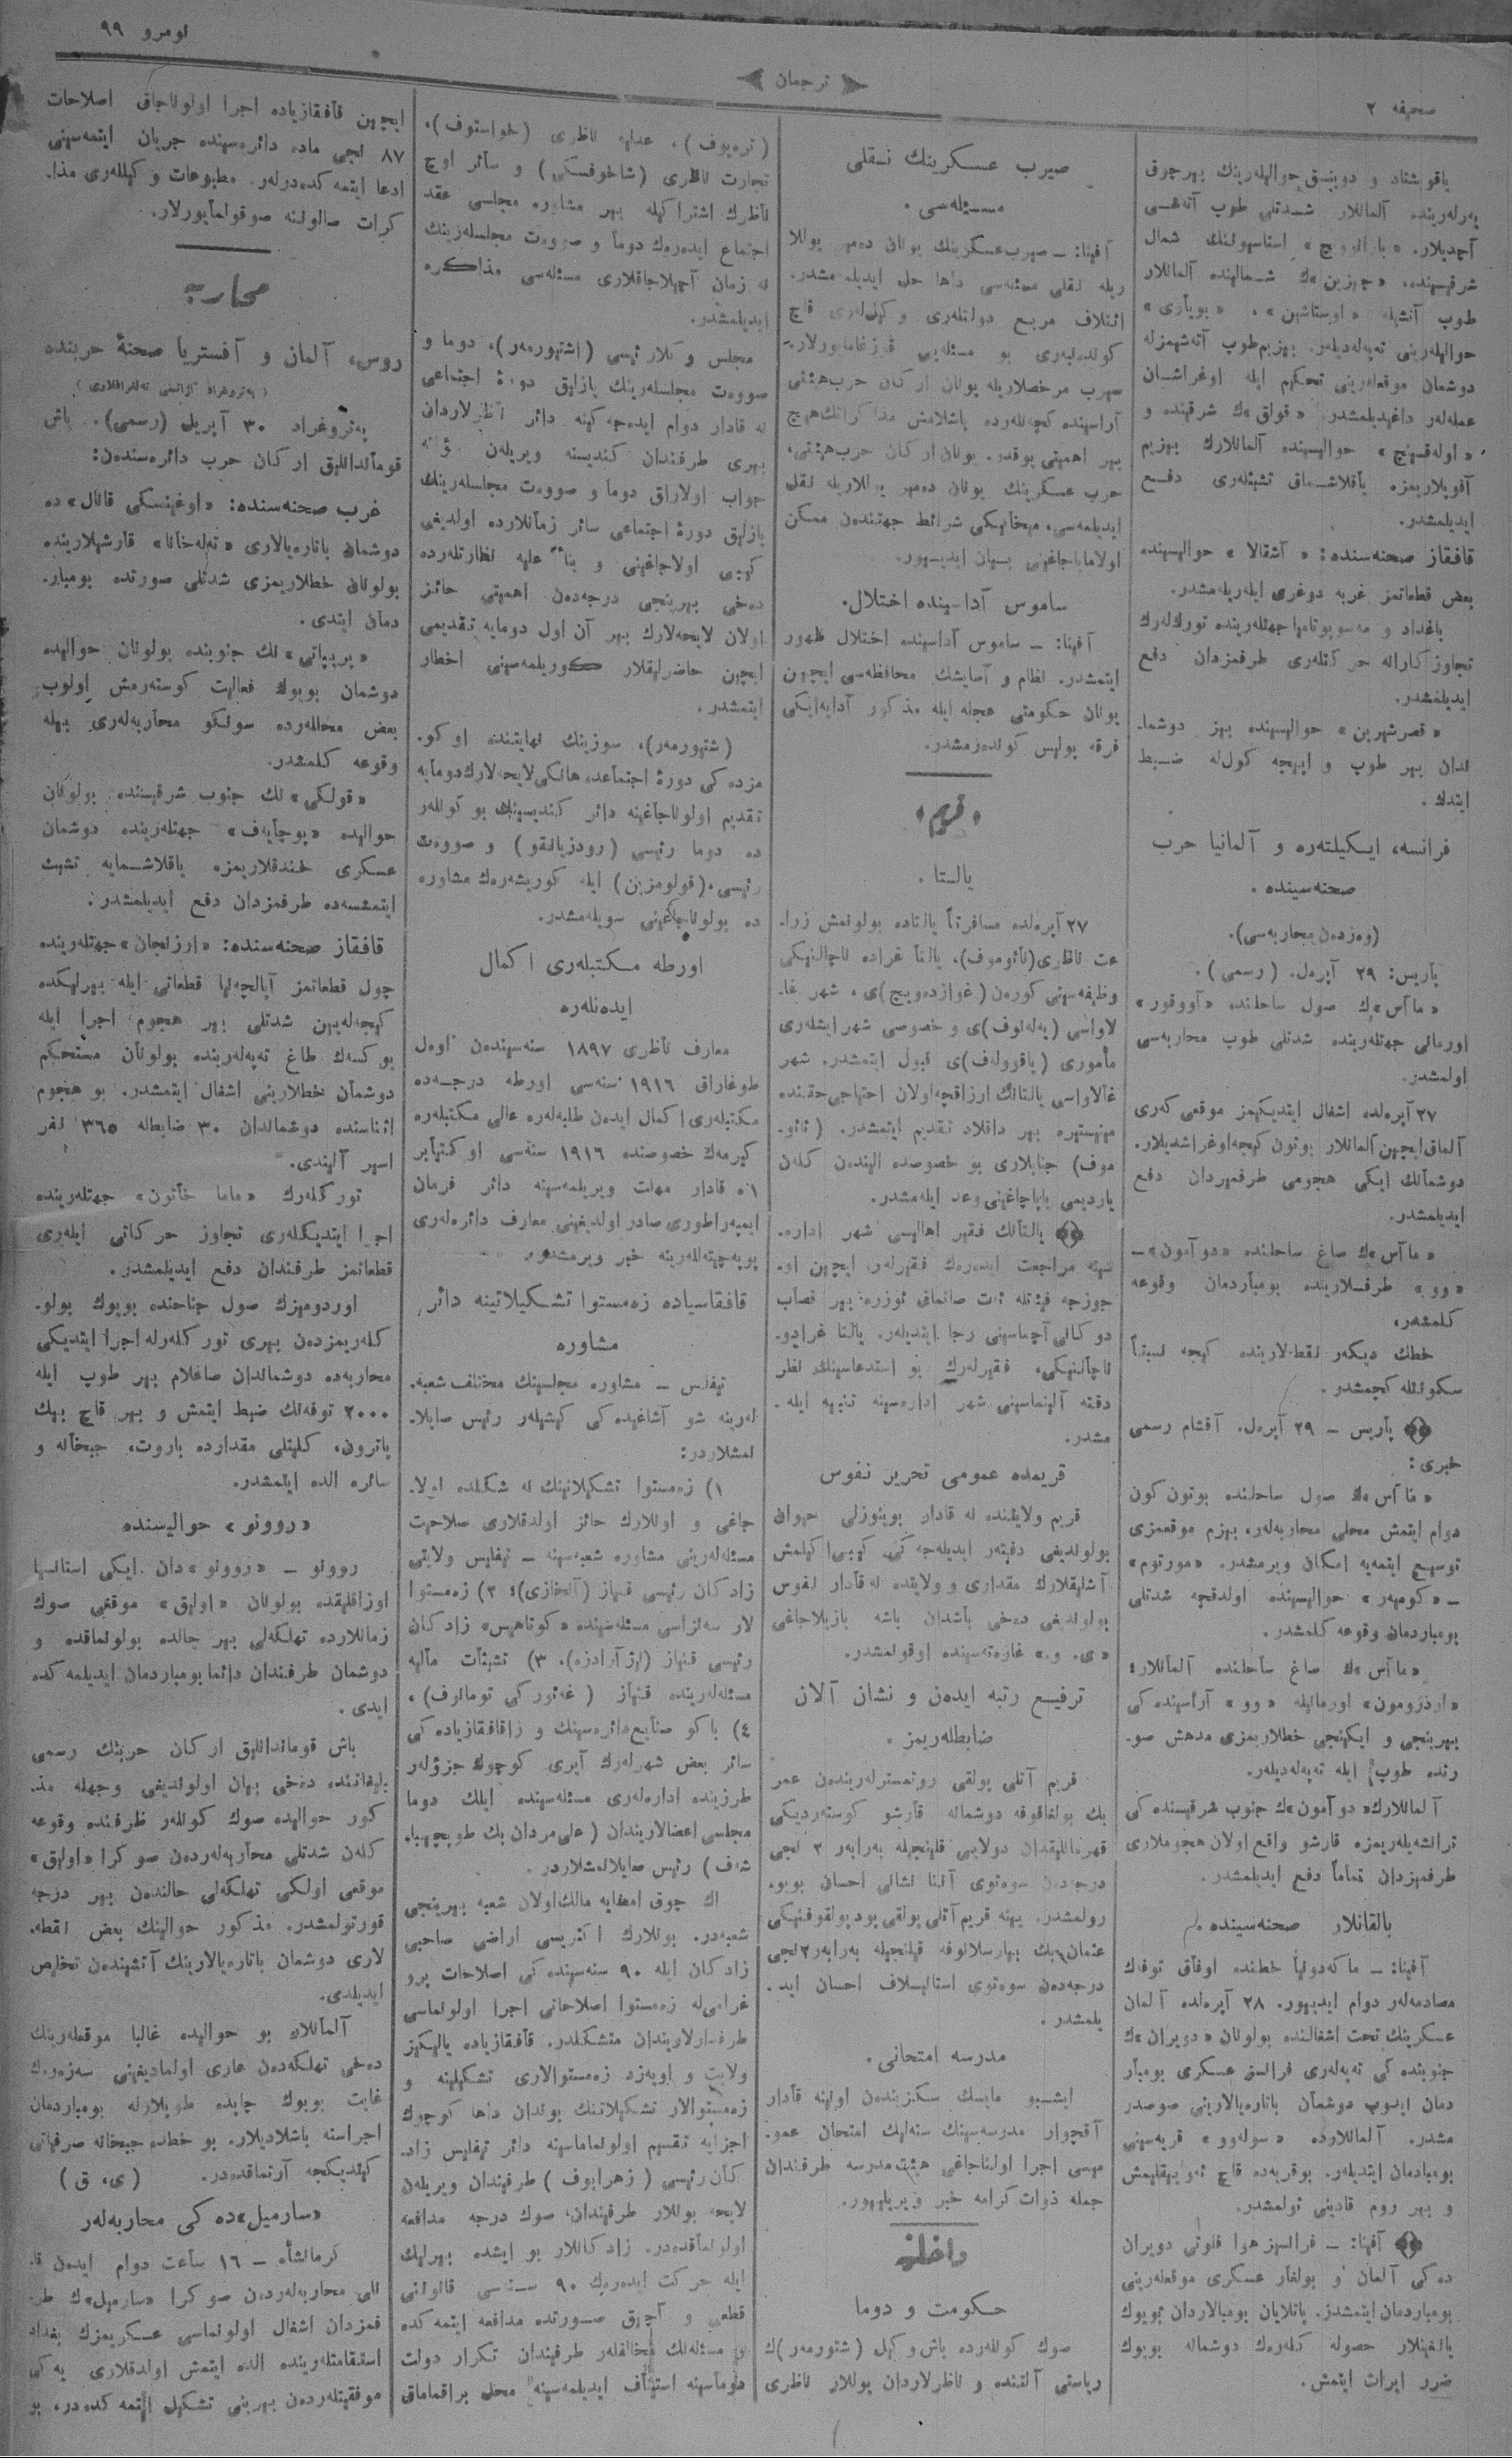 صحیفه ۲
ترجمان
نومرو ۹۹
یاقوبشتاد و دوینسق حوالیلەرینك بیرچوق
یەرلەریندە آلمانلار شدتلی طوپ آتەشی
آچدیلار. «بارانوویچ» استاسیونك شمال
طوپ آتشیلە
حوالیلەرینی تەپەلەدیلەر. بیزیم طوپ آتەشیمزلە
دوشمان موقعلەرینی تحکیم ایلە اوغراشان
عملەلەر داغیدیلمشدر. شرقیندە و
حوالیسندە آلمانلارك بیزیم
آقوپلاریمزە یاقلاشماق تشبثلەری دفع
ایدیلمشدر.
قافقاز صحنەسندە: «آشقالا» حوالیسیندە
بعض قطعاتمز غربە دوغری ایلەریلەمشدر.
بغداد و مەسوپوتامیا جهتلەریندە تورکلەرك
تجاوزکارانە حرکتلەری طرفمزدان دفع
ایدیلمشدر.
«قصرشیرین» حوالیسیندە بیز دوشما-
ندان بیر طوپ و ضبط
ایتدك.
فرانسە، اینکیلتەرە و آلمانیا حرب
صحنەسیندە.
(وەردەن محاربەسی).
پاریس: ۲۹ آپرەل. (رسمی).
«ماآس»ك صول ساحلندە «آووقور»
اورمانی جهتلەریندە شدتلی طوپ محاربەسی
اولمشدر.
۲۷ آپرەلدە اشغال ایتدیکیمز موقعی کەری
آلماق ایچین آلمانلار بوتون کیجە اوغراشدیلار.
دوشمانك ایکی هجومی طرفمیزدان دفع
ایدیلمشدر.
«ماآس»ك صاغ ساحلندە «دوآمون» –
«وو» طرفلاریندە بومباردمان وقوعە
کلمشدر.
خطك دیکەر نقطەلاریندە کیجە نسبتاً
سکونتلە کچمشدر.
پاریس – ۲۹ آپرەل. آقشام رسمی
خبری:
«ماآس»ك صول ساحلندە بوتون کون
دوام ایتمش محلی محاربەلەر، بیزم موقعمزی
توسیع ایتمەیە امکان ویرمشدر. «مورتوم»
– «کومیەر» حوالیسیندە اولدقچە شدتلی
بومباردمان وقوعە کلمشدر.
«ماآس»ك صاغ ساحلندە آلمانلار
اورمانیلە «وو» آراسیندە کی
بیرینجی و ایکینجی خطلاریمزی مدهش صو-
رتدە طوپ ایلە تەپەلەدیلەر.
آلمانلارك «دوآمون»ك جنوب شرقیسندە کی
ترانشەیلەریمزە قارشو واقع اولان هجوملاری
طرفمیزدان تماماً دفع ایدیلمشدر.
بالقانلار صحنەسیندە.
آفینا: – ماکەدونیا خطندە اوفاق توفك
مصادمەلەر دوام ایدیور. ۲۸ آپرەلدە آلمان
عسکرینك تحت اشغالندە بولونان «دویران»ك
جنوبندە کی تەپەلەری فرانسز عسکری بومبار
دمان ایدوب دوشمان باتارەیالارینی صوصدر
مشدر. آلمانلاردە قریەسینی
بومبادمان ایتدیلەر. بو قریەدە قاچ ئەو ییقیلمش
و بیر روم قادینی ئولمشدر.
آفینا: – فرانسیز هوا فلوتی دویران
دە کی آلمان و بولغار عسکری موقعلەرینی
بومباردمان ایتمشدر. پاتلایان بومبالاردان بویوك
یانغینلار حصولە کلەرەك دوشمانە بویوك
ضرر ایراث ایتمش.
صیرب عسکرینك نقلی
مسئلەسی.
آفینا: – صیرب عسکرینك یونان دەمیر یوللا
ریلە نقلی مسئلەسی داها حل ایدیلمەمشدر.
ائتلاف مربع دولتلەری وکیللەری قاچ
کوندنبەری بو مسئلەیی
صیرب مرخصلاریلە یونان ارکان حرب هیئتی
آراسیندە کچەنلەردە باشلانمش مذاکراتك هیچ
بیر اهمیتی یوقدر. یونان ارکان حرب هیئتی،
حرب عسکرینك یونان دەمیر یوللاریلە نقل
ایدیلمەسی، میخانیکی شرائط جهتندەن ممکن
اولامایاجاغینی بیان ایدییور.
ساموس آداسیندە اختلال.
آفینا: – ساموس آداسیندە اختلال ظهور
ایتمشدر. نظام و آسایشك محافظەسی ایچین
یونان حکومتی عجلە ایلە مذکور آدایە ایکی
فرقە پولیس کوندەرمشدر.
قریم
یالتا.
۲۷ آپرەلدە مسافرتاً یالتادە بولونمش زرا-
عت ناظری (نائوموف)، یالتا غرادە ناچالنیکی
وظیفەسینی کورەن ی، شهر غا-
لاواسی ی و خصوصی شهر ایشلەری
مأموری ی قبول ایتمشدر. شهر
غالاواسی یالتانك ارزاقچە اولان احتیاجی حقندە
مینیسترە بیر دقلاد تقدیم ایتمشدر. (نائو-
موف) جنابلاری بو خصوصدە الیندەن کلەن
یاردیمی یاپاچاغینی وعد ایلەمشدر.
یالتانك فقیر اهالیسی شهر ادارە-
سینە مراجعت ایدەرەك فقیرلەر ایچین او-
جوزجە فیئتلە ئت صاتماق ئوزرە بیر قصاب
دوکانی آچماسینی رجا ایتدیلەر. یالتا غرادو-
ناچالنیکی، فقیرلەرك بو استدعاسینك نظر
دقتە آلینماسینی شهر ادارەسینە تنبیە ایلە-
مشدر.
قریمدە عمومی تحریر نفوس
قریم ولایتندە نە قادار بوینوزلی حیوان
بولوندیغی دفتەر ایدیلەجەکی کیبی اکیلمش
آشلیقلارك مقداری و ولایتدە نە قادار نفوس
بولوندیغی دەخی باشدان باشە یازیلاجاغی
«ی. و.» غازەتەسیندە اوقونمشدر.
ترفیع رتبە ایدەن و نشان آلان
ضابطلەریمز.
قریم آتلی پولقی روتمسترلەریندەن عمر
بك بولغاقوفە دوشمانە قارشو کوستەردیکی
قهرمانلیقدان دولایی قلینجیلە بەرابەر ۲ نجی
درجەدەن سوەتوی آننا نشانی احسان بویو-
رولمشدر. یینە قریم آتلی پولقی پودپولقوفنیکی
عثمان بك بیارسلانوفە قیلنجیلە بەرابەر ۲ نجی
درجەدەن سوەتوی استانیسلاف احسان اید-
یلمشدر.
مدرسە امتحانی.
ایشبو مایسك سکزیندەن اونینە قادار
آقچوار مدرسەسینك سنەلیك امتحان عمو-
میسی اجرا اولناجاغی هیئت مدرسە طرفندان
جملە ذوات کرامە خبر ویریلییور.
داخلیە
حکومت و دوما
صوك کونلەردە باش وکیل (شتورمەر)ك
ریاستی آلتندە و ناظرلاردان یوللار ناظری
(ترەپوف)، عدلیە ناظری (خواستوف)،
تجارت ناظری (شاخوفسکی) و سائر اوچ
ناظرك اشتراکیلە بیر مشاورە مجلسی عقد
اجتماع ایدەرەك دوما و صووەت مجلسلەرینك
نە زمان آچیلاجاقلاری مسئلەسی مذاکرە
ایدیلمشدر.
مجلس وکلا رئیسی (اشتورمەر)، دوما و
صووەت مجلسلەرینك یازلیق دورۀ اجتماعی
نە قادار دوام ایدەجەکینە دائر ناظرلاردان
بیری طرفندان کندیسنە ویریلەن سؤالە
جواب اولاراق دوما و صووەت مجلسلەرینك
یازلیق دورۀ اجتماعی سائر زمانلاردە اولدیغی
کیبی اولاجاغینی و بناءً علیە نظارتلەردە
دەخی بیرینجی درجەدەن اهمیتی حائز
اولان لایحەلارك بیر آن اول دومایە تقدیمی
ایچین حاضرلیقلار کوریلمەسینی اخطار
ایتمشدر.
(شتورمەر)، سوزینك نهایتندە اوکو-
مزدە کی دورۀ اجتماعدە هانکی لایحەلارك دومایە
تقدیم اولوناجاغینە دائر کندیسینك بو کونلەر
دە دوما رئیسی (رودزیانقو) و صووەت
رئیسی (قولومزین) ایلە کوریشەرەك مشاورە
دە بولوناجاغینی سویلەمشدر.
اورطە مکتبلەری اکمال
ایدەنلەرە
معارف ناظری ۱۸۹۷ سنەسیندەن اوەل
طوغاراق ۱۹۱۶ سنەسی اورطە درجەدە
مکتبلەری اکمال ایدەن طلبەلەرە عالی مکتبلەرە
کیرمەك خصوصندە ۱۹۱۶ سنەسی اوکتیابر
۱ە قادار مهلت ویریلمەسینە دائر فرمان
ایمپەراطوری صادر اولدیغینی معارف دائرەلەری
پوپەچیتەللەرینە خبر ویرمشدر.
قافقاسیادە زەمستوا تشکیلاتینە دائر
مشاورە
تیفلیس – مشاورە مجلسینك مختلف شعبە-
لەرینە شو آشاغیدە کی کیشیلەر رئیس صایلا-
نمشلاردر:
۱) زەمستوا تشکیلاتینك نە شکلدە اولا-
جاغی و اونلارك حائز اولدقلاری صلاحیت
مسئلەلەرینی مشاورە شعبەسینە – تیفلیس ولایتی
زادکان رئیسی قنیاز (آبخازی)؛ ۲) زەمستوا
لار سەنزاسی مسئلەسیندە «کوتاهیس» زادکان
رئیسی قنیاز ۳) تشبثات مالیە
مسئلەلەریندە قنیاز (غەئورکی تومانوف)،
٤) باکو صنایع دائرەسینك و زاقافقازیادە کی
سائر بعض شهرلەرك آیری کوچوك جزؤلەر
طرزیندە ادارەلەری مسئلەسیندە ایلك دوما
مجلسی اعضالاریندان (علی مردان بك طوپچیبا-
شەف) رئیس صایلانمشلاردر.
اك چوق اعضایە مالك اولان شعبە بیرینجی
شعبەدر. بونلارك اکثریسی اراضی صاحبی
زادکان ایلە ۹۰ سنەسیندە کی اصلاحات پرو
غرامی لە زەمستوا اصلاحاتی اجرا اولونماسی
طرفدارلاریندان متشکلدر. قافقازیادە یالیکیز
ولایت و اویەزد زەمستوالاری تشکیلینە و
زەمستوالار تشکیلاتنك بوندان داها کوچوك
اجزایە تقسیم اولونماماسینە دائر تیفلیس زاد-
کان رئیسی (زهرابوف) طرفیندان ویریلەن
لایحە بونلار طرفیندان صوك درجە مدافعە
اولونماقدەدر. زادکانلار بو ایشدە بیرلیك
ایلە حرکت ایدەرەك ۹۰ سنەسی قانونی
قطعی و آچیق صورتدە مدافعە ایتمەکدە
مسئلەنك مخالفلەر طرفیندان تکرار دولت
دوماسینە استیناف ایدیلمەسینە محل براقماماق
ایچین قافقازیادە اجرا اولوناجاق اصلاحات
۸۷ نجی مادە دائرەسیندە جریان ایتمەسینی
ادعا ایتمەکدەدرلەر. مطبوعات وکیللەری مذا-
کرات صالونینە صوقولمایورلار.
محاربە
روس، آلمان و آفستریا صحنۀ حربندە
(پەتروغراد آژانسی تەلغرافلاری)
پەتروغراد ۳۰ آپریل (رسمی). باش
قومانداللیق ارکان حرب دائرەسندەن:
غرب صحنەسندە: «اوغینسکی قانال»دە
دوشمان باتارەیالاری «تەلەخانا» قارشیلاریندە
بولونان خطلاریمزی شدتلی صورتدە بومبار-
دمان ایتدی.
«پریپاتی»نك جنوبندە بولونان حوالیدە
دوشمان بویوك فعالیت کوستەرمش اولوب
بعض محللەردە سونکو محاربەلەری بیلە
وقوعە کلمشدر.
«قولکی»نك جنوب شرقیسندە بولونان
حوالیدە جهتلەریندە دوشمان
عسکری خندقلاریمزە یاقلاشمایە تشبث
ایتمشسەدە طرفمزدان دفع ایدیلمشدر.
قافقاز صحنەسندە: «ارزنجان» جهتلەریندە
چول قطعاتمز قطعاتی ایلە بیرلیکدە
کیجەلەیین شدتلی بیر هجوم اجرا ایلە
یوکسەك طاغ تەپەلەریندە بولونان مستحکم
دوشمان خطلارینی اشغال ایتمشدر. بو هجوم
اثناسندە دوشماندان ۳۰ ضابطلە ۳٦٥ نفر
اسیر آلیندی.
تورکلەرك «ماما خاتون» جهتلەریندە
اجرا ایتدیکلەری تجاوز حرکاتی ایلەری
قطعاتمز طرفندان دفع ایدیلمشدر.
اوردومیزك صول جناحندە بویوك بولو-
کلەریمزدەن بیری تورکلەرلە اجرا ایتدیکی
محاربەدە دوشماندان صاغلام بیر طوپ ایلە
۲۰۰۰ توفەنك ضبط ایتمش و بیر قاچ بیك
پاترون، کلیتلی مقداردە باروت، جبخانە و
سائرە الدە ایتمشدر.
«روونو» حوالیسندە
روونو – «روونو»دان ایکی استانسیا
اوزاقلیقدە بولونان «اولیق» موقعی صوك
زمانلاردە تهلکەلی بیر حالدە بولونماقدە و
دوشمان طرفندان دائما بومباردمان ایدیلمەکدە
ایدی.
باش قومانداللیق ارکان حربنك رسمی
بلیغاتندە دەخی بیان اولوندیغی وجهلە مذ-
کور حوالیدە صوك کونلەر ظرفندە وقوعە
کلەن شدتلی محاربەلەردەن صوکرا «اولیق»
موقعی اولکی تهلکەلی حالندەن بیر درجە
قورتولمشدر. مذکور حوالینك بعض نقطە-
لاری دوشمان باتارەیالارینك آتشیندەن تخلیص
ایدیلدی.
آلمانلار بو حوالیدە غالبا موقعلەرینك
دەخی تهلکەدەن عاری اولمادیغینی سەزەرەك
غایت بویوك چاپدە طوپلارلە بومباردمان
اجراسنە باشلادیلار. بو خطدە جبخانە صرفیاتی
کیتدیکجە آرتماقدەدر. (ی. ق)
«سارمیل»دە کی محاربەلەر
کرمانشاە – ۱٦ ساعت دوام ایدەن قا-
نلی محاربەلەردەن صوکرا «سارمیل»ك طر-
فمزدان اشغال اولونماسی عسکریمزك بغداد
استقامتلەریندە الدە ایتمش اولدقلاری یەکی
موفقیتلەردەن بیرینی تشکیل ایتمەکدەدر. بو